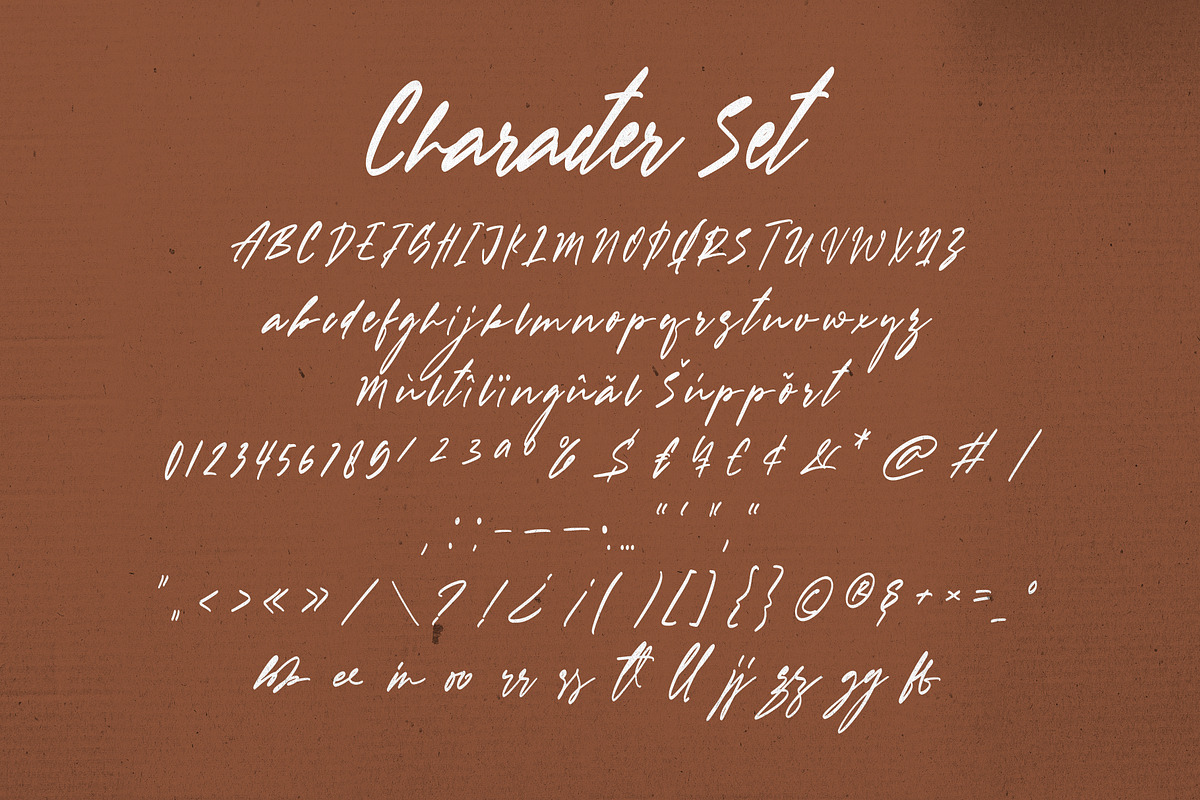 Character Set
ABCDEFGHIJKLMNOPQRSTUVWXYZ
abcdefghijklmnopqrstuvwxyz
Mùltîlïngûãl Šúppõrt
0123456789 1 2 3 a o % $ € ¥ £ ¢ & * @ # /
, : ; - – — · : … “ ‘ " , “
" „ < > « » / \ ? ! ¿ ¡ ( ) [ ] { } © ® § + × = _ °
bb ee in oo rr ss tt ll jj zz gg ff